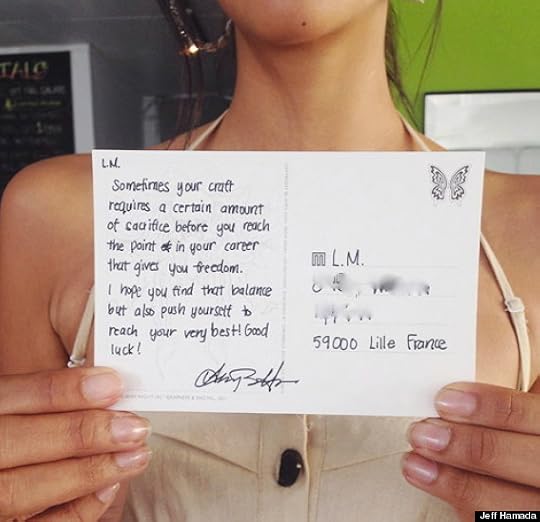 L.M.
Sometimes your craft
requires a certain amount
of sacrifice before you reach
the point in your career
that gives you freedom.
I hope you find that balance
but also push yourself to
reach your very best! Good
luck!
L.M.
59000 Lille France
Jeff Hamada